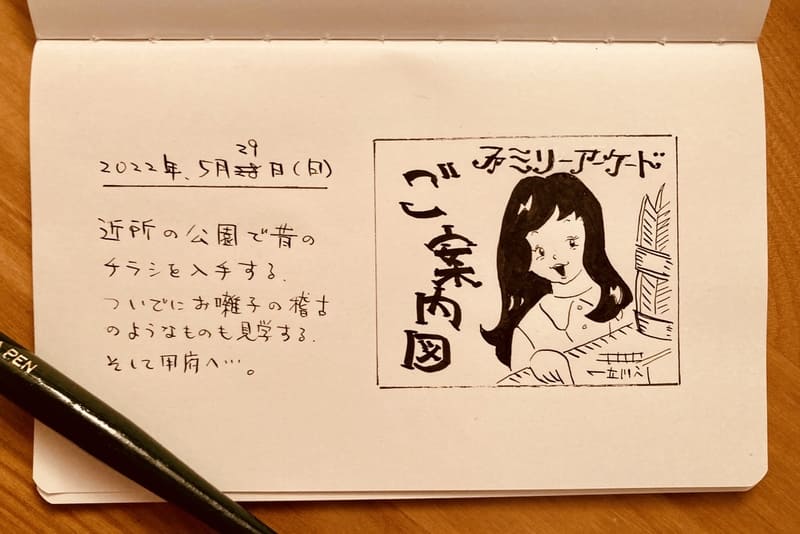 29
2022年、5月日(日)
近所の公園で昔の
チラシを入手する.
ついでにお囃子の稽古
のようなものも見学する.
そして甲府へ…。
ファミリーアーケード
ご案内図
PEN